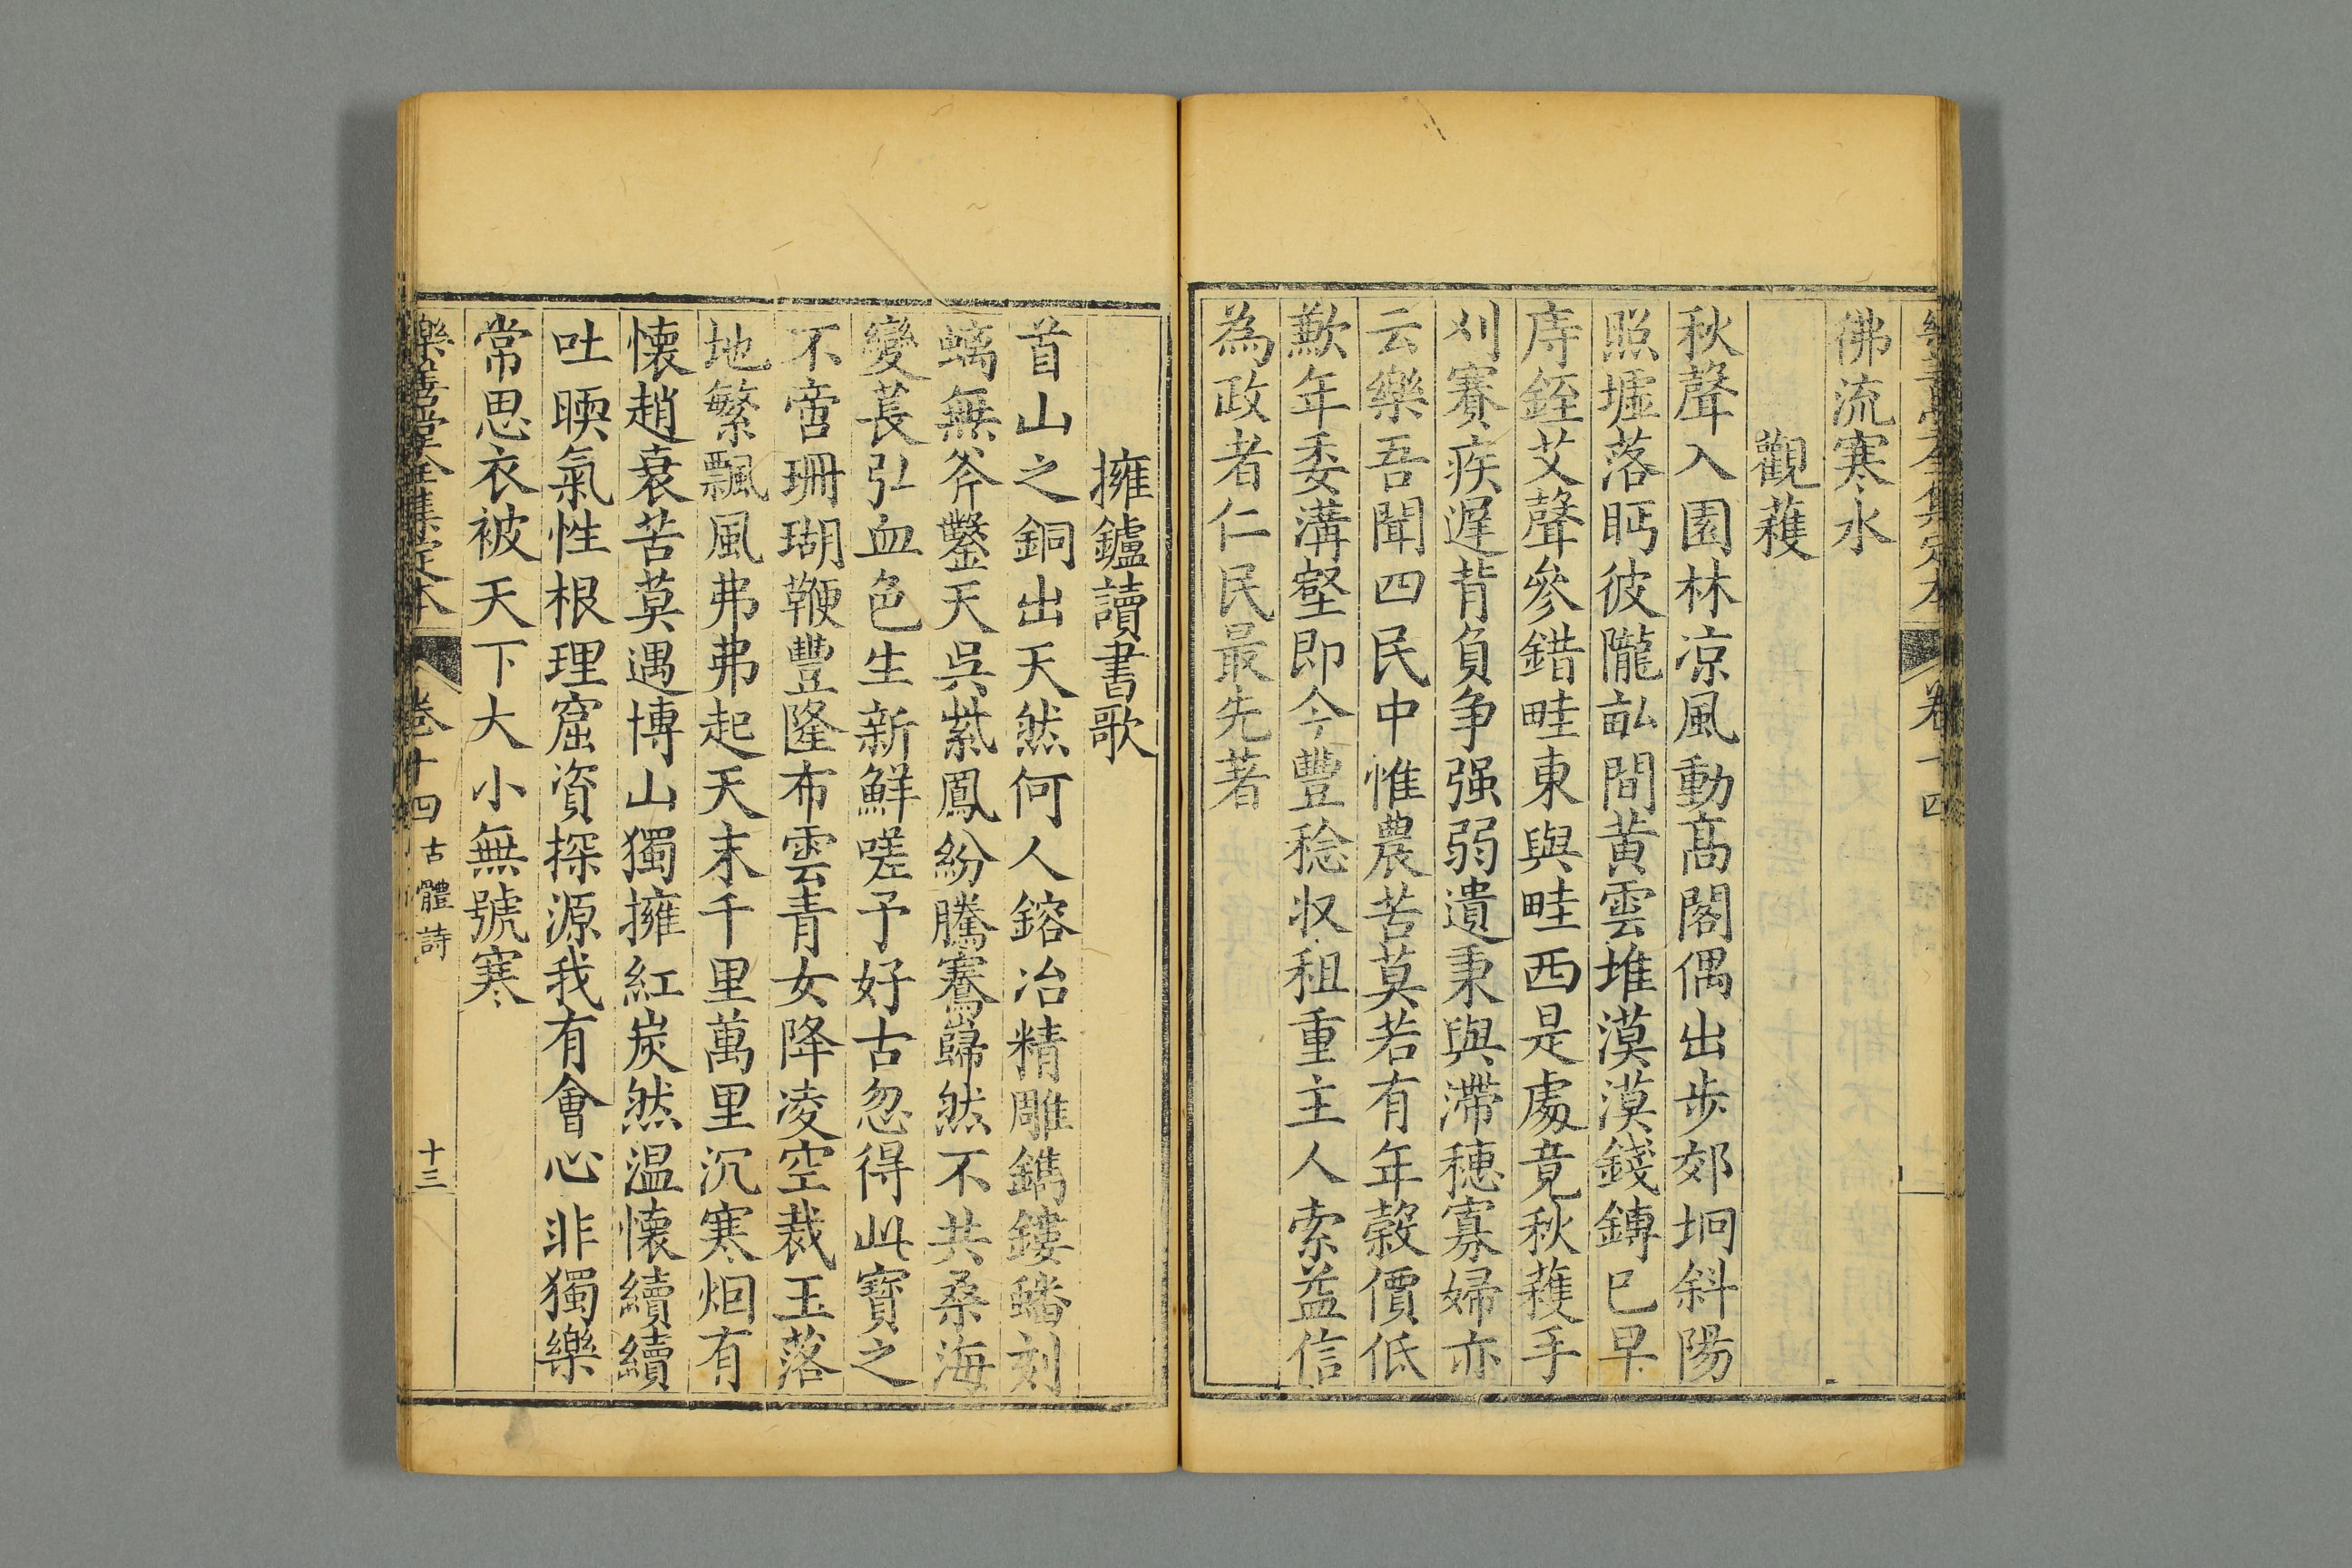 樂善堂全集定本 卷十四
彿流寒水
觀蓷
秋聲入園林凉風動高閣偶出步郊坰斜陽
照墟落眄彼隴畆間黄雲堆漠漠錢鎛巳早
庤銍艾聲參錯畦東與畦西是處竟秋蓷手
刈賽疾遲背負争强弱遺秉與滯穗寡婦亦
云樂吾聞四民中惟農苦莫若有年穀價低
歉年委溝壑即今豐稔收租重主人索益信
為政者仁民最先著
擁鑪讀書歌
首山之銅出天然何人鎔冶精雕鐫鏤蟠刻
螭無斧鑿天吳紫鳳紛騰騫巋然不共桑海
變萇弘血色生新鮮嗟予好古忽得此寳之
不啻珊瑚鞭豐隆布雲青女降凌空裁玉落
地繁飄風弗弗起天末千里萬里沉寒烟有
懐趙衰苦莫遇博山獨擁紅炭然温懐續續
吐㬉氣性根理窟資探源我有會心非獨樂
常思衣被天下大小無號寒
樂善堂全集定本 卷十四 古體詩 十三